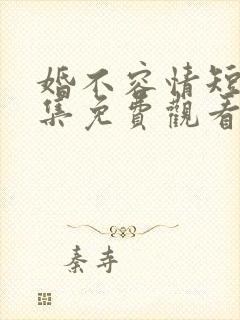 婚不容情短
集免費觀看
秦寺